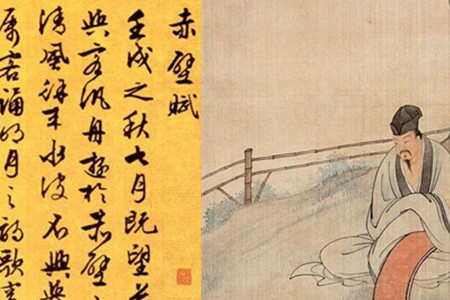 赤壁賦
壬戌之秋七月既望蘇
與客汎舟遊於赤壁之
清風徐來水波不興舉
屬客誦明月之詩歌窈